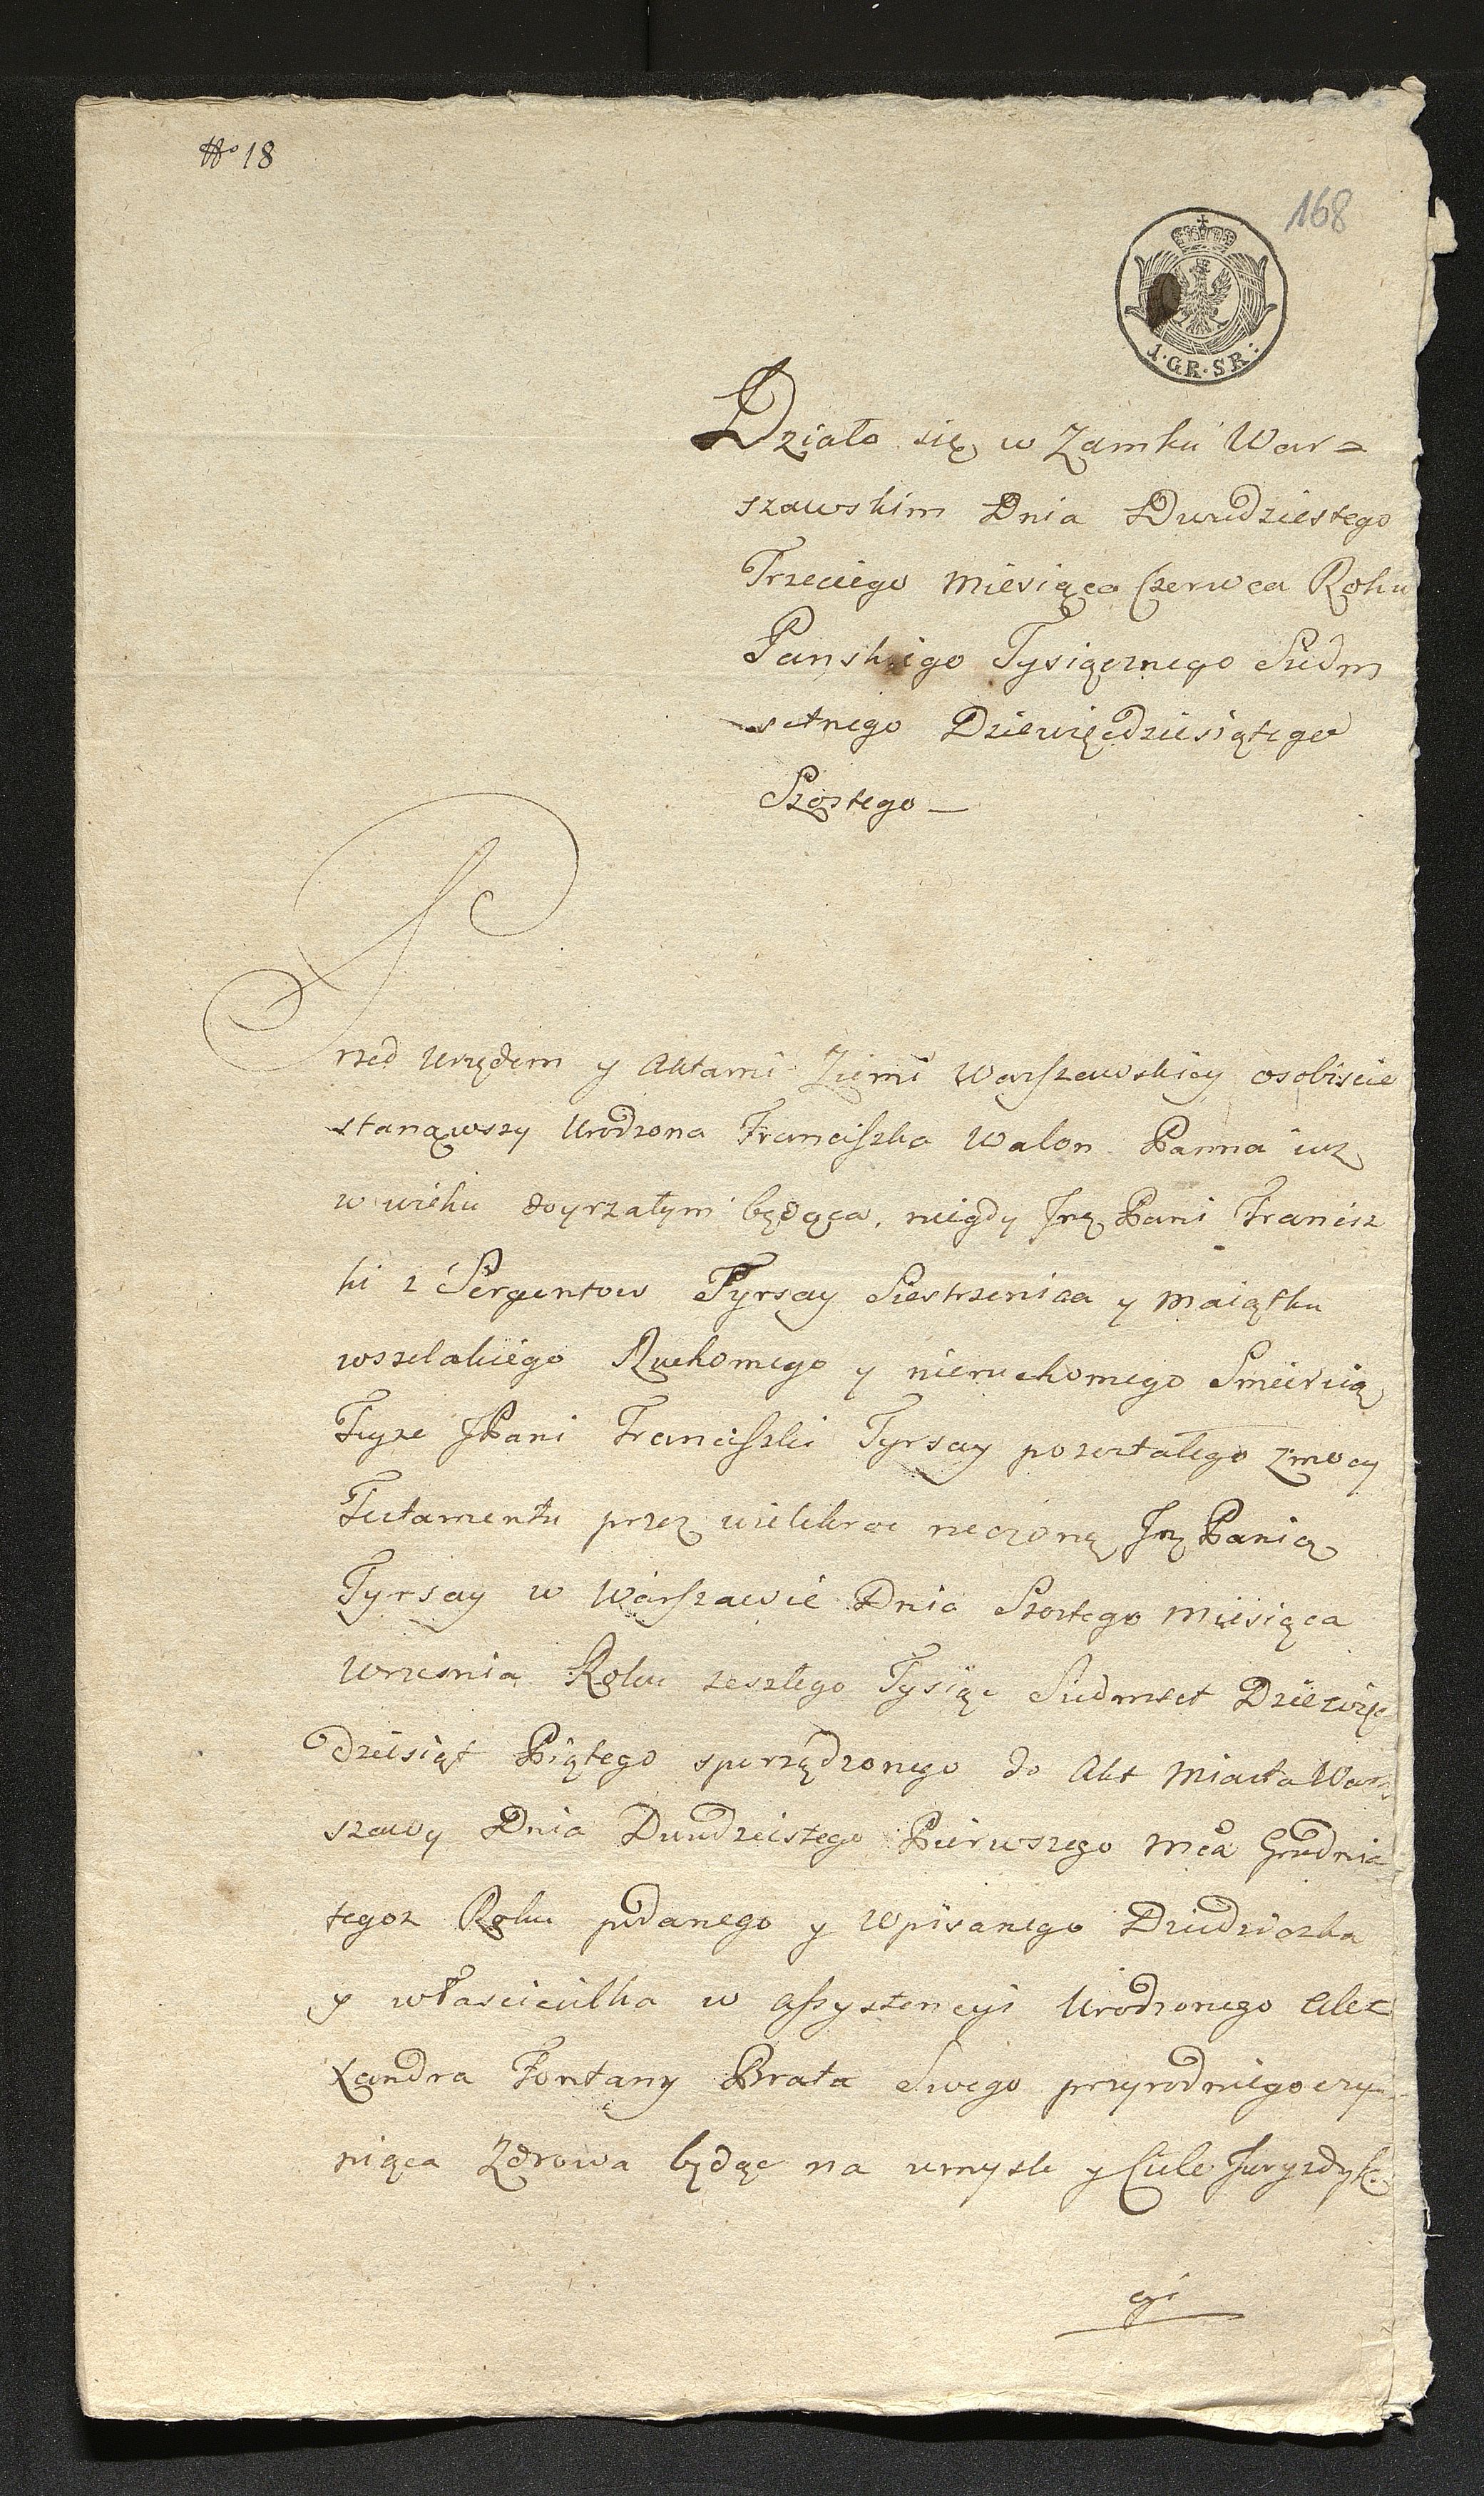 No 18
168
1·GR·SR:
Działo się w Zamku War=
szawskim Dnia Dwudziestego
Trzeciego Miesiąca Czerwca Roku
Panskiego Tysiącznego Siedm
setnego Dziewięcdziesiątego
Szostego —
Przed Urzędem y Aktami Ziemi Warszawskiey osobiscie
stanąwszy Urodzona Franciszka Walon Panna iuz
w wieku doyrzałym będąca, niegdy Jmę Pani Francisz
ki z Sergentow Tyrsay Siestrzenica y Maiątku
wszelakiego Ruchomego y nieruchomego Smiercią
Teyze JPani Franciszki Tyrsay pozostałego z mocy
Testamentu przez wielekroc rzeczoną Jmę Panią
Tyrsay w Warszawie Dnia Szostego Miesiąca
Wrzesnia Roku zeszłego Tysiąc Siedmset Dziewięc
dziesiąt Piątego sporządzonego do Akt Miasta War
szawy Dnia Dwudziestego Pierwszego Mca Grudnia
tegoz Roku podanego y wpisanego Dziedziczka
y własciciulka w assystencyi Urodzonego Ale=
xandra Fontany Brata Swego przyrodniego czy
niąca Zdrowa będąc na umysle y Ciele Juryzdyk
cyi